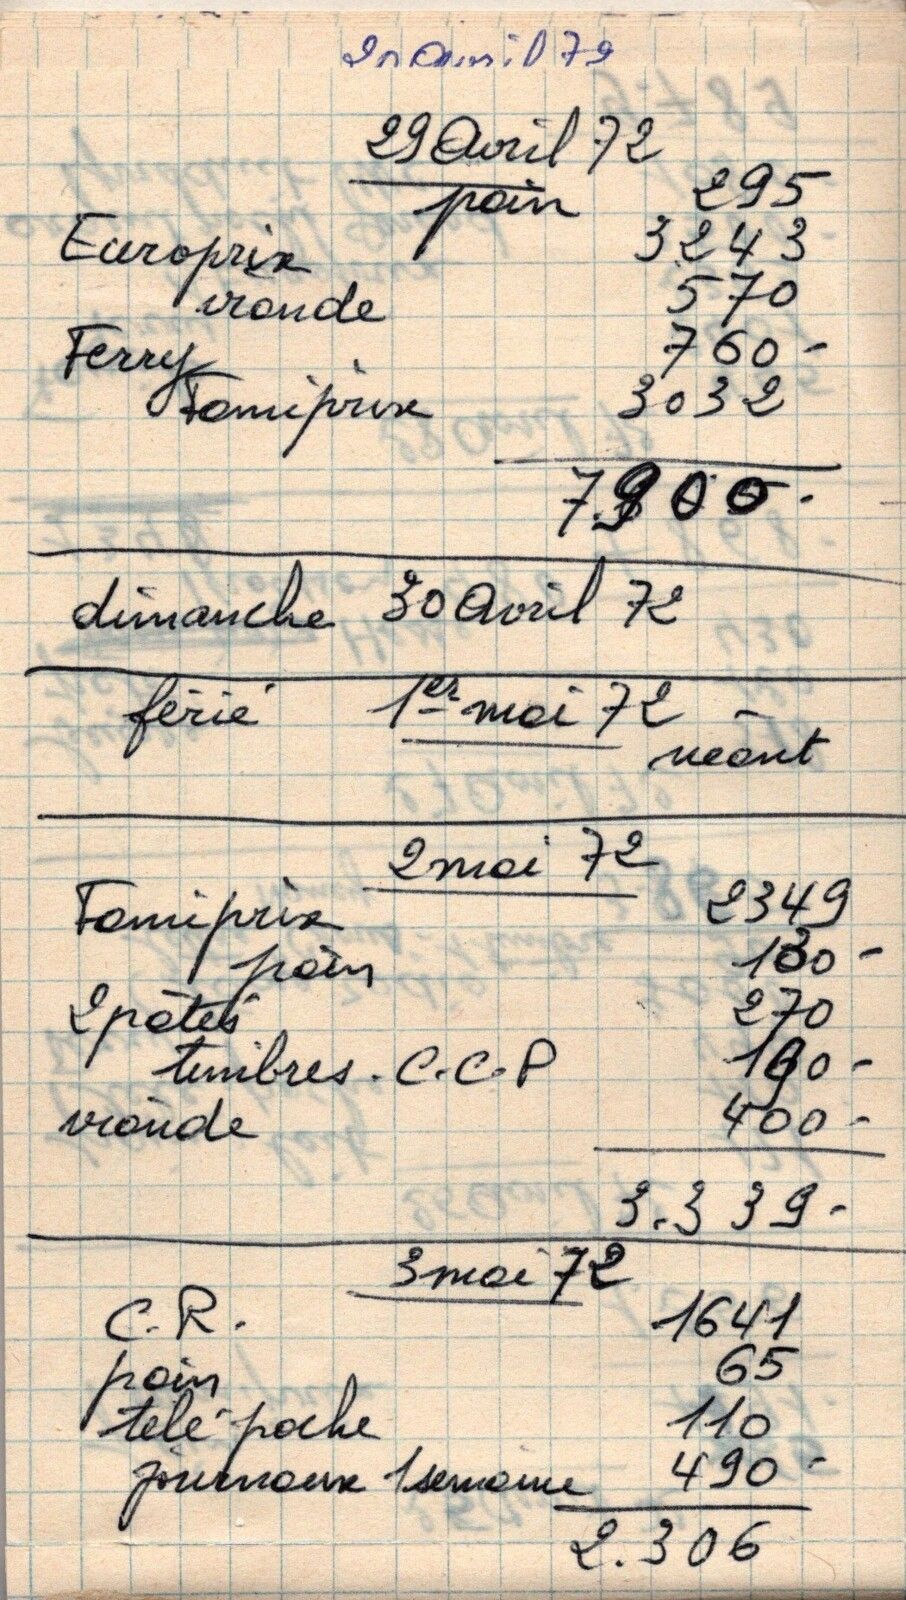 29 Avril 72
pain 295
Europrix 3243
viande 570
Ferry 760-
Famiprix 3032
7.900-
dimanche 30 Avril 72
férié 1er mai 72 -
néant
2 mai 72
Famiprix 2349
pain 130-
2 pâtés 270
timbres. C.C.P 190-
viande 400-
3.339-
3 mai 72
C.R. 1641
pain 65
télé poche 110
journaux 1 semaine 490-
2.306